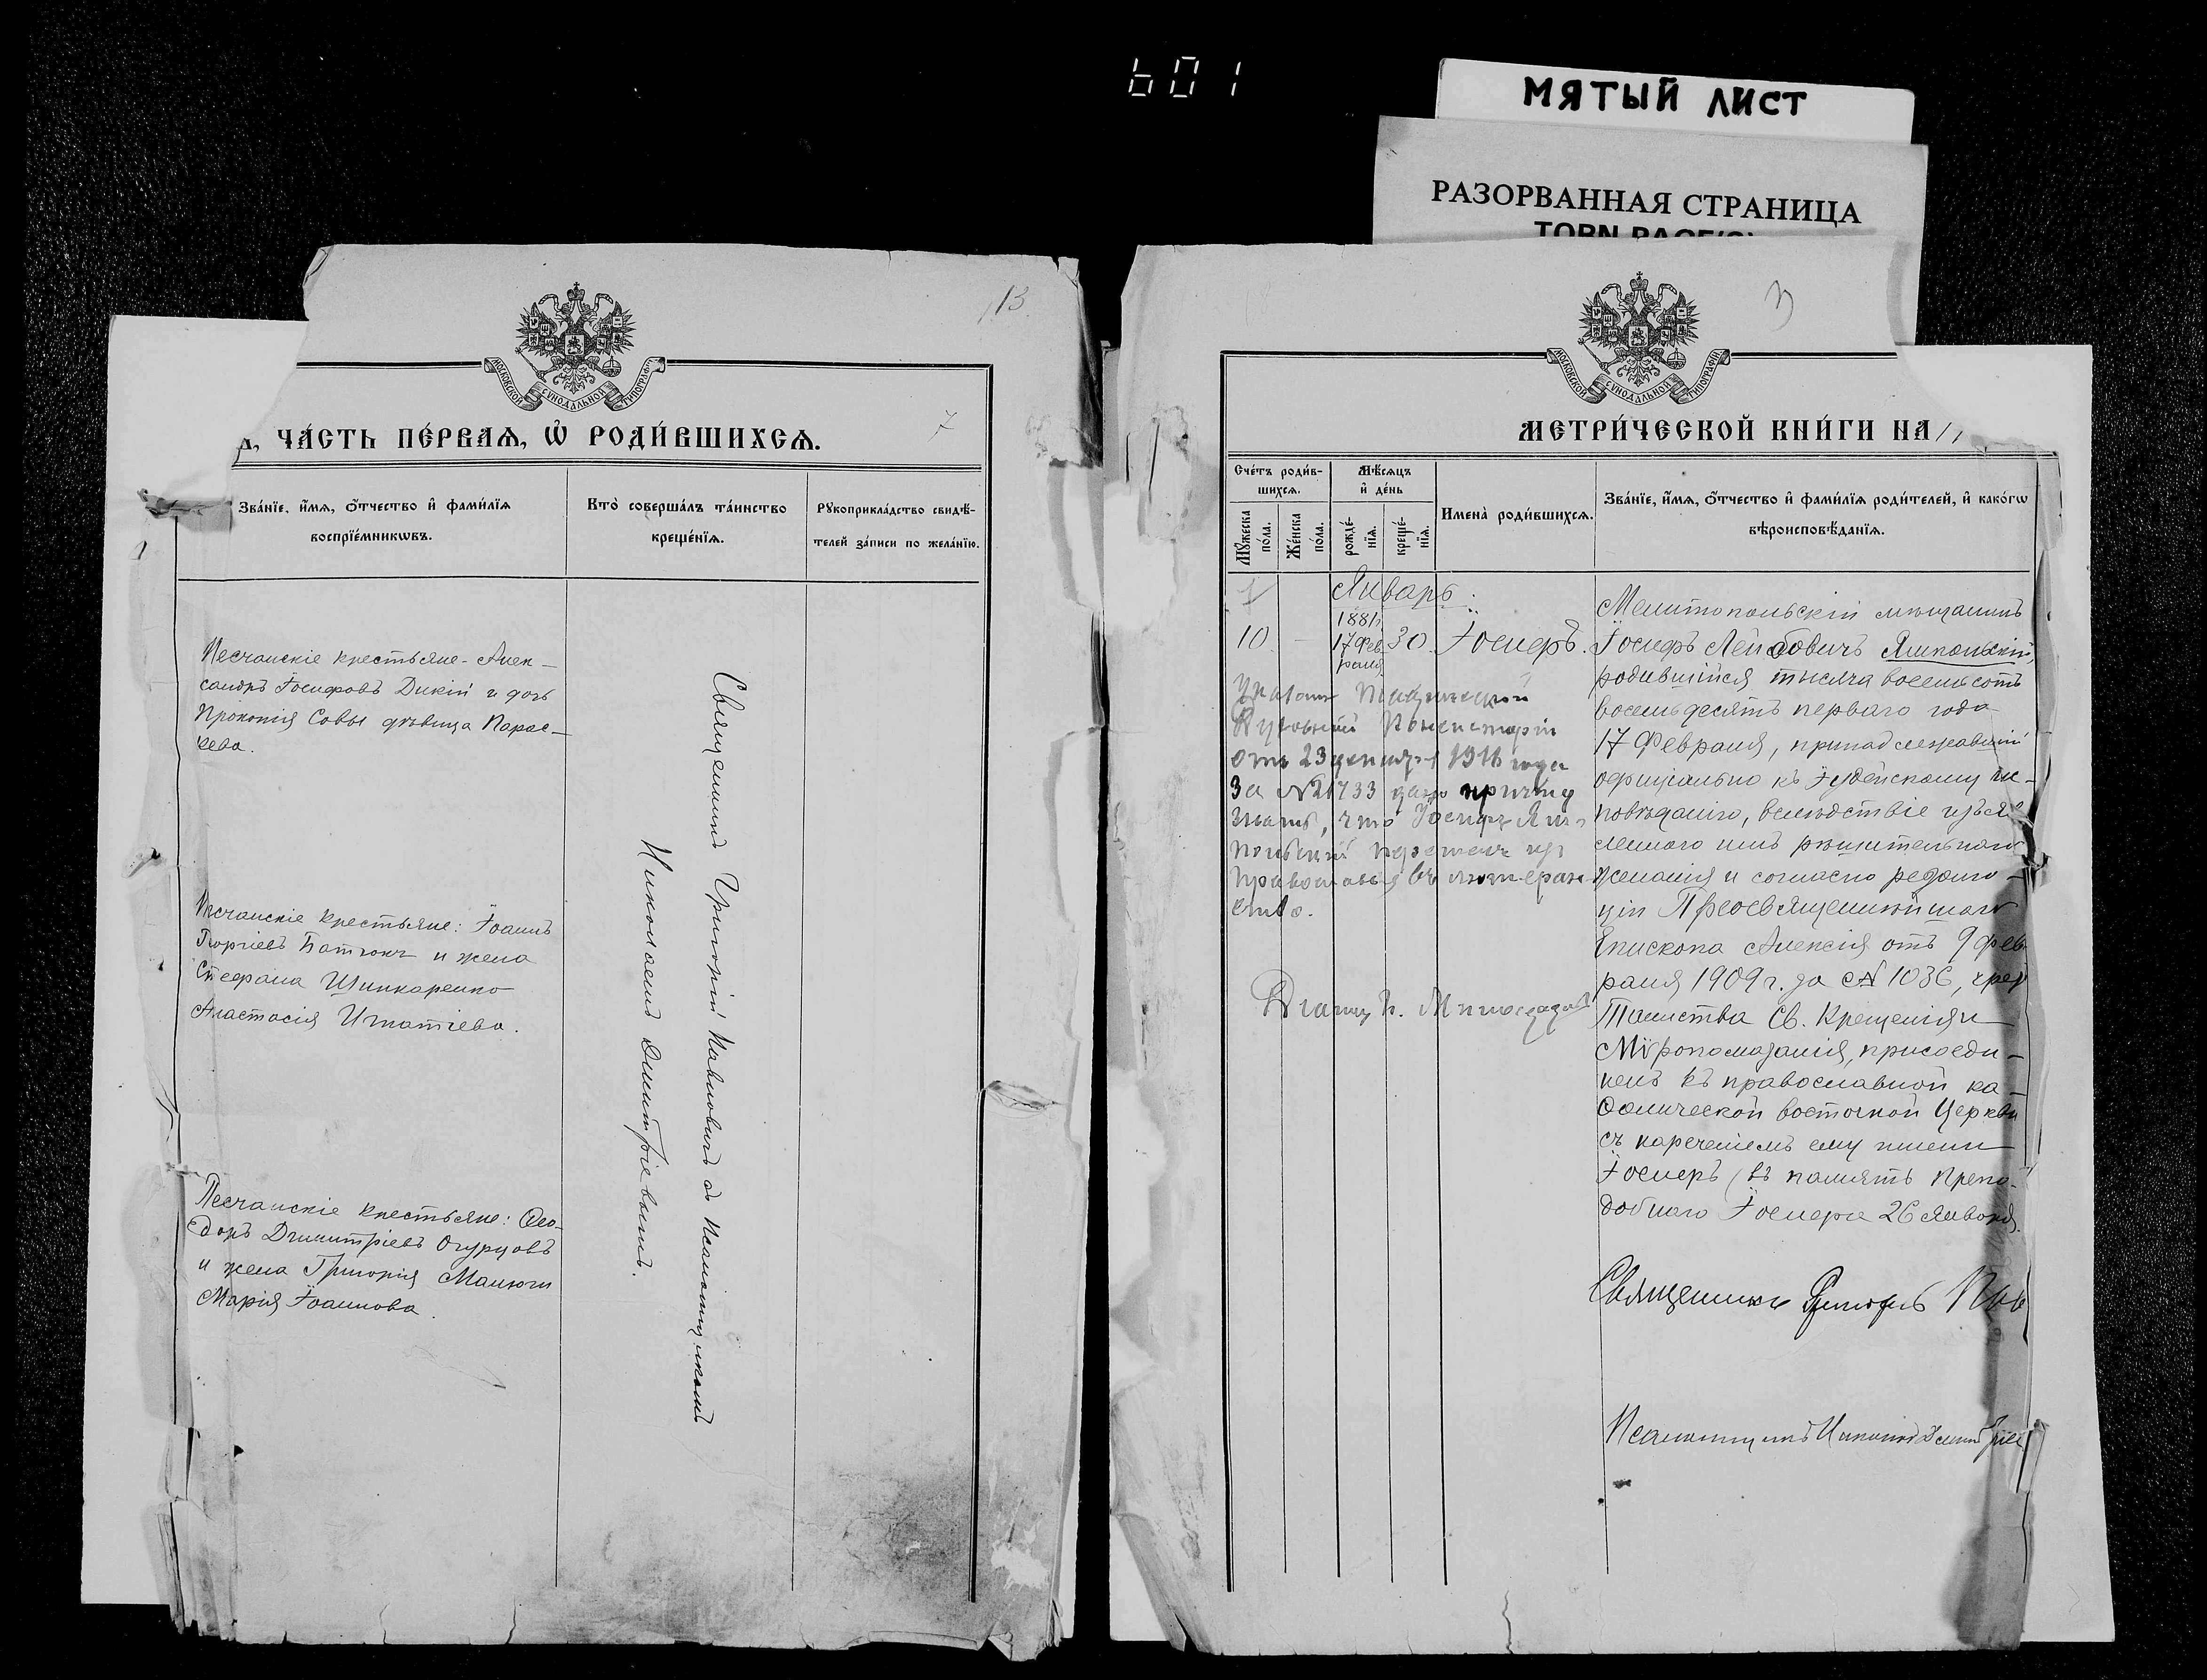 601
МЯТЫЙ ЛИСТ
РАЗОРВАННАЯ СТРАНИЦА
TORN PAGE(S)
13
МОСКОВСКОЙ СУНОДАЛЬНОЙ ТИПОГРАФІИ
7
ЧА́СТЬ ПЕ́РВАѦ, Ѽ РОДИ́ВШИХСѦ.
Зва́нїе, и҆́мѧ, ѻ҆́тчество и҆ фами́лїѧ
воспрїе́мникѡвъ.
Кто̀ соверша́лъ та́инство
креще́нїѧ.
Рꙋкоприкла́дство свидѣ́-
телей за́писи по жела́нїю.
Песчанскіе крестьяне - Алек-
сандръ Іосифовъ Дикій и дочь
Прокопія Совы дѣвица Парас-
кева.
Песчанскіе крестьяне: Іоаннъ
Георгіевъ Батюкъ и жена
Стефана Шинкаренко
Анастасія Игнатіева.
Песчанскіе крестьяне: Ѳео-
доръ Димитріевъ Огурцовъ
и жена Григорія Манюги
Марія Іоаннова.
Священникъ Григорій Павловичъ съ Псаломщикомъ
Николаемъ Димитріевымъ.
3
МОСКОВСКОЙ СУНОДАЛЬНОЙ ТИПОГРАФІИ
МЕТРИ́ЧЕСКОЙ КНИ́ГИ НА
Сче́тъ роди́в-
шихсѧ.
Мꙋ́жеска по́ла.
Же́нска по́ла.
Мѣ́сѧцъ
и҆ де́нь
рожде́-
нїѧ.
креще́-
нїѧ.
И҆мена̀ роди́вшихсѧ.
Зва́нїе, и҆́мѧ, ѻ҆́тчество и҆ фами́лїѧ роди́телей, и҆ како́гѡ
вѣроисповѣ́данїѧ.
Январь.
10 - 1881г. 17 Фев- раля 30. Іосифъ.
Мелитопольскій мѣщанинъ
Іосифъ Лейбовичъ Ямпольскій,
родившійся тысяча восемьсотъ
восемьдесятъ перваго года
17 Февраля, принадлежавшій
офиціально къ Іудейскому ис-
повѣданію, вслѣдствіе изъяв-
леннаго имъ рѣшительнаго
желанія и согласно резолю-
ціи Преосвященнѣйшаго
Епископа Алексія отъ 9 фев-
раля 1909 г. за № 1036, чрез
Таинства Св. Крещенія и
Мѵропомазанія, присоеди-
ненъ къ православной ка-
ѳолической восточной Церкви
съ нареченіемъ ему имени
Іосифъ (въ память Препо-
добнаго Іосифа 26 Января.
Священникъ Григорій Пав
Псаломщикъ Николай Димитріе
Указомъ Таврической
Духовной Консисторіи
отъ 23 1916 года
За № 21733 дано причту
знать, что Іосифъ Ям-
польскій перешелъ изъ
православія въ лютеран-
ство.